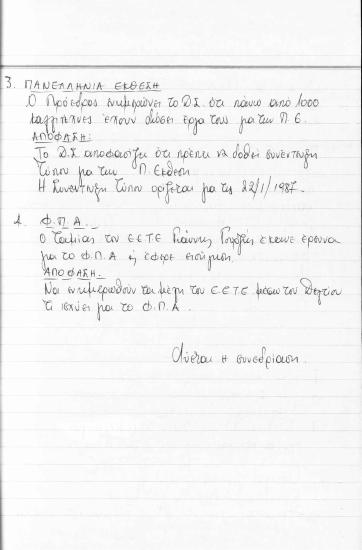 3. ΠΑΝΕΛΛΗΝΙΑ ΕΚΘΕΣΗ
Ο Πρόεδρος ενημερώνει το Δ.Σ. ότι πάνω από 1000
καλλιτέχνες έχουν δώσει έργα τους για την Π.Ε.
ΑΠΟΦΑΣΗ:
Το Δ.Σ αποφασίζει ότι πρέπει να δοθεί συνέντευξη
τύπου για την Π. Εκθεση.
Η Συνέντευξη Τύπου ορίζεται για τις 22/1/1987.
4. Φ.Π.Α.
Ο ταμίας του ΕΕΤΕ Γιάννης έκανε έρευνα
για το Φ.Π.Α ή έφερε εισήγηση.
ΑΠΟΦΑΣΗ.
Να ενημερωθούν τα μέλη του Ε.Ε.Τ.Ε μέσω του Δελτίου
τι ισχύει για το Φ.Π.Α.
Λύεται η συνεδρίαση.